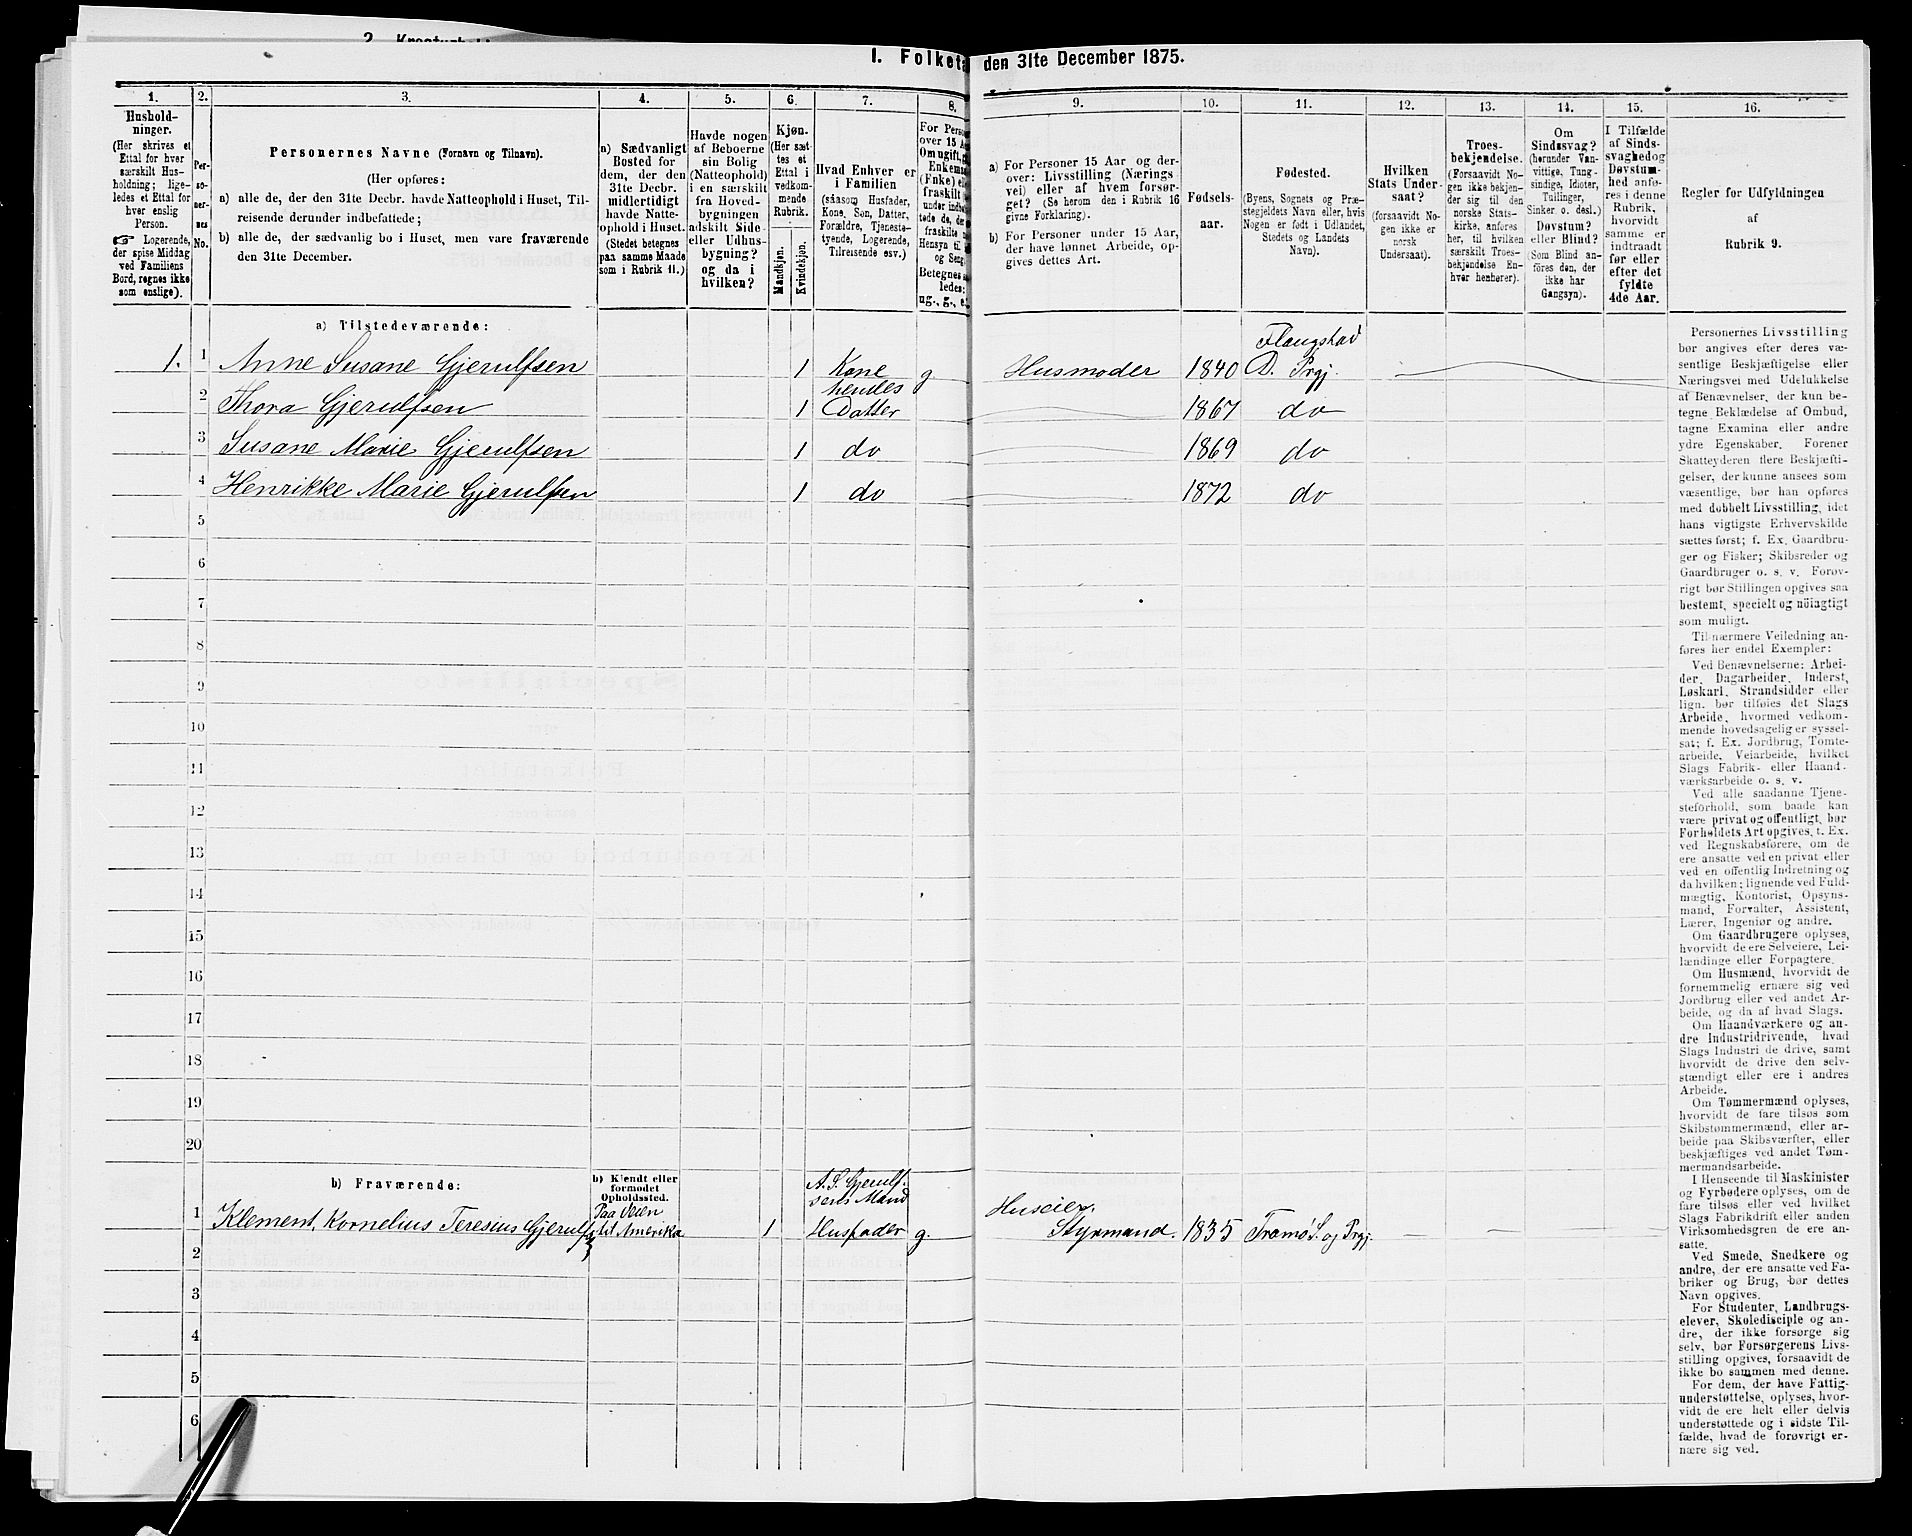 2. Kreaturhold
I. Folketa den 31te December 1875.
1. 2. 3. 4. 5. 6. 7. 8. 9. 10. 11. 12. 13. 14. 15. 16.
Hushold-
ninger.
(Her skrives et
Ettal for hver
særskilt Hus-
holdning; lige-
ledes et Ettal for
hver enslig
Person.
☞ Logerende,
der spise Middag
ved Familiens
Bord, regnes ikke
som enslige).
Per-
so-
ner-
nes
No.
Personernes Navne (Fornavn og Tilnavn).
(Her opføres:
a) alle de, der den 31te Decbr. havde Natteophold i Huset, Til-
reisende derunder indbefattede;
b) alle de, der sædvanlig bo i Huset, men vare fraværende
den 31te December).
a) Sædvanligt
Bosted for
dem, der den
31te Decbr.
midlertidigt
havde Natte-
ophold i Huset.
(Stedet betegnes
paa samme Maade
som i Rubrik 11.)
Havde nogen
af Beboerne
sin Bolig
(Natteophold)
i en særskilt
fra Hoved-
bygningen
adskilt Side-
eller Udhus-
bygning?
og da i
hvilken?
Kjøn.
(Her sæt-
tes et
Ettal i
vedkom-
mende
Rubrik.
Mandkjøn.
Kvindekjøn.
Hvad Enhver er
i Familien
(saasom Husfader,
Kone, Søn, Datter,
Forældre, Tjeneste-
tyende, Logerende,
Tilreisende osv.)
For Perso
over 15 A
Om ugift, g
Enkema
(Enke) el
fraskilt
under indbe
tede de, de
fraskilte
Hensyn til
og Seng
Betegnes s
ledes:
ug., g., e.
a) For Personer 15 Aar og der-
over: Livsstilling (Nærings
vei) eller af hvem forsør-
get? (Se herom den i Rubrik 16
givne Forklaring).
b) For Personer under 15 Aar,
der have lønnet Arbeide, op-
gives dettes Art.
Fødsels-
aar.
Fødested.
(Byens, Sognets og Præ-
stegjeldets Navn eller, hvis
Nogen er født i Udlandet,
Stedets og Landets
Navn).
Hvilken
Stats Under-
saat?
(forsaavidt No-
gen ikke er
norsk
Undersaat).
Troes-
bekjendelse.
(Forsaavidt No-
gen ikke bekjen-
der sig til den
norske Stats-
kirke, anføres
her, til hvilken
særskilt Troes-
bekjendelse En-
hver henhører).
Om
Sindssvag?
(herunder Van-
vittige, Tung-
sindige, Idioter,
Tullinger,
Sinker o. desl.)
Døvstum?
eller Blind?
(Som Blind an-
føres den, der
ikke har
Gangsyn).
I Tilfælde
af Sinds-
svaghed og
Døvstum-
hed anfø-
res i denne
Rubrik,
hvorvidt
samme er
indtraadt
før eller
efter det
fyldte
4de Aar.
Regler for Udfyldningen
af
Rubrik 9.
a) Tilstedeværende:
Flaugstad
1. 1 Anne Susane Gjerulfsen 1 Kone g Husmoder 1840 D. Prgj.
2 Thora Gjerulfsen 1 hendes Datter 1867 do
3 Susane Marie Gjerulfsen 1 do 1869 do
4 Henrikke Marie Gjerulfsen 1 do 1872 do
5
6
7
8
9
10
11
12
13
14
15
16
17
18
19
20
b) Fraværende:
b) Kjendt eller
formodet
Opholdssted.
A. S. Gjerulf-
sens Mand
Paa Veien
Huseier,
1 Klement, Kornelius Teresius Gjerulf- til Amerika 1 Husfader g. Styrmand. 1835 Tromø S. og Prgj.
2
3
4
5
6
Personernes Livsstilling
bør angives efter deres væ-
sentlige Beskjæftigelse eller
Næringsvei med Udelukkelse
af Benævnelser, der kun be-
tegne Beklædelse af Ombud,
tagne Examina eller andre
ydre Egenskaber. Forener
Skatteyderen flere Beskjæfti-
gelser, der kunne ansees som
væsentlige, bør han opføres
med dobbelt Livsstilling, idet
hans vigtigste Erhvervskilde
sættes først; f. Ex. Gaardbru-
ger og Fisker; Skibsreder og
Gaardbruger o. s. v. Forøv-
rigt bør Stillingen opgives saa
bestemt, specielt og nöiagtigt
som muligt.
Til nærmere Veiledning an-
føres her endel Exempler:
Ved Benævnelserne: Arbei-
der, Dagarbeider, Inderst,
Løskarl, Strandsidder eller
lign. bør tilføies det Slags
Arbeide, hvormed vedkom-
mende hovedsagelig er syssel-
sat; f. Ex. Jordbrug, Tomte-
arbeide, Veiarbeide, hvilket
Slags Fabrik- eller Haand-
værksarbeide o. s. v.
Ved alle saadanne Tjene-
steforhold, som baade kan
være privat og offentligt, bør
Forholdets Art opgives, t. Ex.
ved Regnskabsførere, om de
ere ansatte ved en privat eller
ved en offentlig Indretning og
da hvilken; lignende ved Fuld-
mægtig, Kontorist, Opsyns-
mand, Forvalter, Assistent,
Lærer, Ingeniør og andre.
Om Gaardbrugere oplyses,
hvorvidt de ere Selveiere, Lei-
lændinge eller Forpagtere.
Om Husmænd, hvorvidt de
fornemmelig ernære sig ved
Jordbrug eller ved andet Ar-
beide, og da af hvad Slags.
Om Haandværkere og an-
dre Industridrivende, hvad
Slags Industri de drive, samt
hvorvidt de drive den selv-
stændigt eller ere i andres
Arbeide.
Om Tømmermænd oplyses,
hvorvidt de fare tilsøs som
Skibstømmermænd, eller ar-
beide paa Skibsværfter, eller
beskjæftiges ved andet Tøm-
mermandsarbeide.
I Henseende til Maskinister
og Fyrbødere oplyses, om de
fare tilsøs eller ved hvilket
Slags Fabrikdrift eller anden
Virksomhedsgren de ere an-
satte.
Ved Smede, Snedkere og
andre, der ere ansatte ved Fa-
briker og Brug, bør dettes
Navn opgives.
For Studenter, Landbrugs-
elever, Skoledisciple og an-
dre, der ikke forsørge sig
selv, bør Forsørgerens Livs-
stilling opgives, forsaavidt de
ikke bo sammen med denne.
For dem, der have Fattig-
understøttelse, oplyses, hvor-
vidt de ere helt eller delvis
understøttede og i sidste Til-
fælde, hvad de forøvrigt er-
nære sig ved.